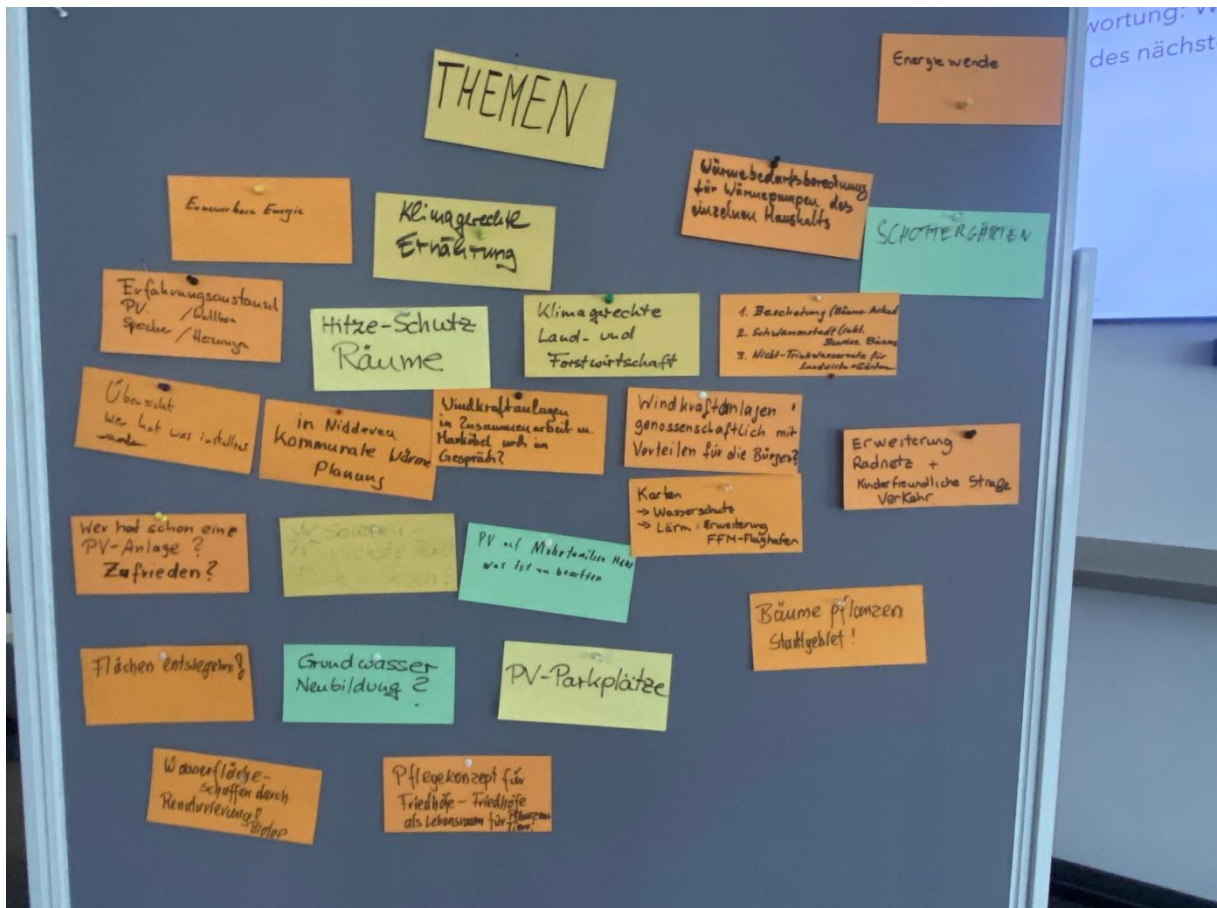 wortung: W
des nächst
THEMEN
Energie wende
Wärmebedarfsberechnung
für Wärmepumpen des
einzelnen Haushalts
Erneuerbare Energie
Klimagerechte
Ernährung
SCHOTTERGÄRTEN
Erfahrungsaustausch
PV /Wallbox
Speicher / Heizungen
Hitze-Schutz
Räume
Klimagerechte
Land- und
Forstwirtschaft
1. Beschattung (Bäume
2. Schwammstadt (inkl.
Bäume
3. Nicht-Trinkwassernetz für
Landwirte + Gärten
Übersicht
wer hat was installiert
in Nidderau
Kommunale Wärme
Planung
Windkraftanlagen
in Zusammenarbeit m.
Marköbel noch im
Gespräch?
Windkraftanlagen
genossenschaftlich mit
Vorteilen für die Bürger?
Erweiterung
Radnetz +
Kinderfreundliche Straße
Verkehr
Karten
→ Wasserschutz
→ Lärm: Erweiterung
FFM-Flughafen
Wer hat schon eine
PV-Anlage?
Zufrieden?
PV auf Mehrfamilien Haus
was ist zu beachten
Bäume pflanzen
Stadtgebiet!
Flächen entsiegeln?
Grundwasser
Neubildung?
PV-Parkplätze
Wasserfläche-
schaffen durch
Renaturierung!
Biotop
Pflegekonzept für
Friedhöfe - Friedhöfe
als Lebensraum für Pflanzen
Tiere!